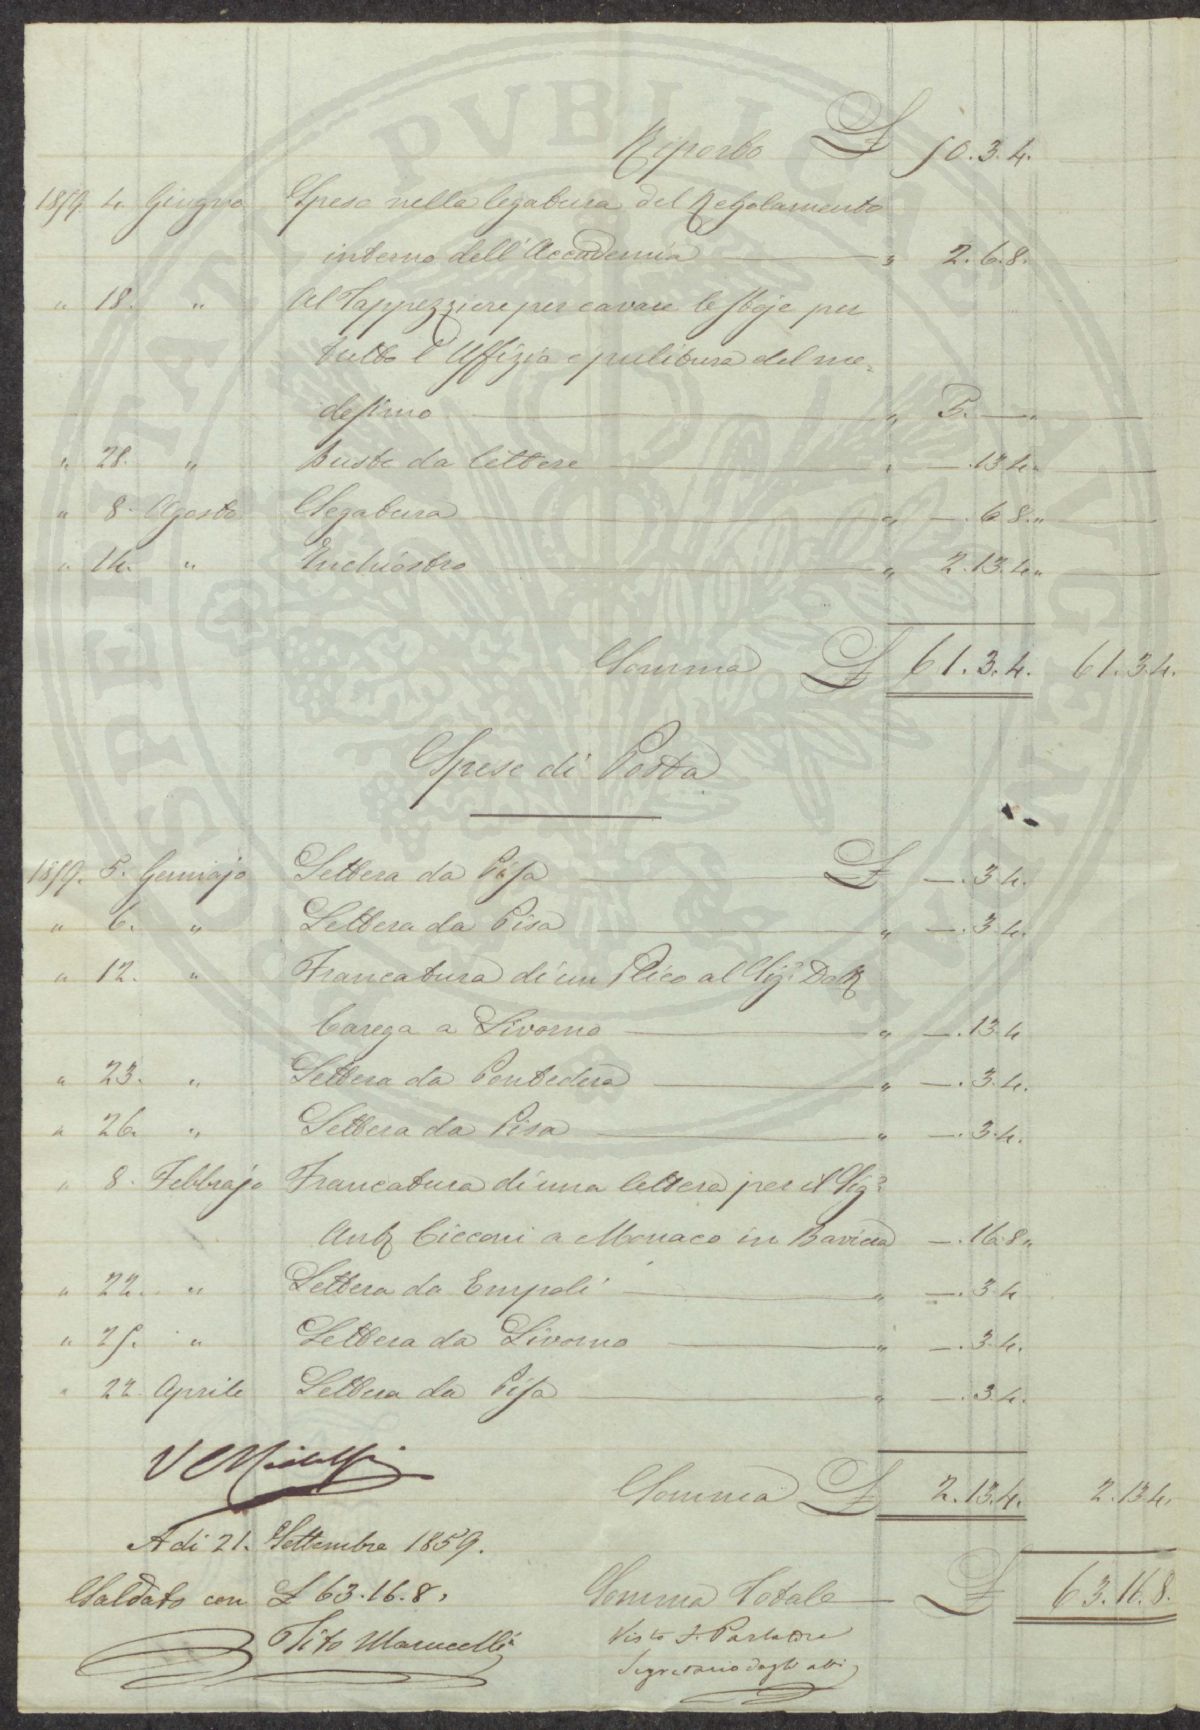 Riporto £ 50.3.4.
1859. 4. Giugno Spese nella legatura del Regolamento
interno dell'Accademia " 2.6.8.
" 18. " Al Tappezziere per cavare le stoje per
tutto l'Uffizio e pulitura del me=
desimo " 5.—"
" 28. " Buste da lettere " —.13.4."
" 8. Agosto Legatura " —.6.8."
" 14. " Inchiostro " 2.13.4."
Somma £ 61.3.4. 61.3.4.
Spese di Posta
1859. 5. Gennajo Lettera da Pisa £ —.3.4.
" 6. " Lettera da Pisa " —.3.4.
" 12. " Francatura di un Plico al Sigr. Dott
Carega a Livorno " —.13.4
" 23. " Lettera da Pontedera " —.3.4.
" 26. " Lettera da Pisa " —.3.4.
" 8. Febbrajo Francatura di una lettera per il Sigr.
Ant Cicconi a Monaco in Baviera —.16.8"
" 22. " Lettera da Empoli " —.3.4
" 25. " Lettera da Livorno " —.3.4.
" 22. Aprile Lettera da Pisa " —.3.4.
Somma £ 2.13.4. 2.13.4.
A di 21. Settembre 1859.
Saldato con £ 63.16.8.
Tito Marucelli
Somma Totale £ 63.16.8.
Visto F. Parlatore
Segretario degli atti
PVBLICAE